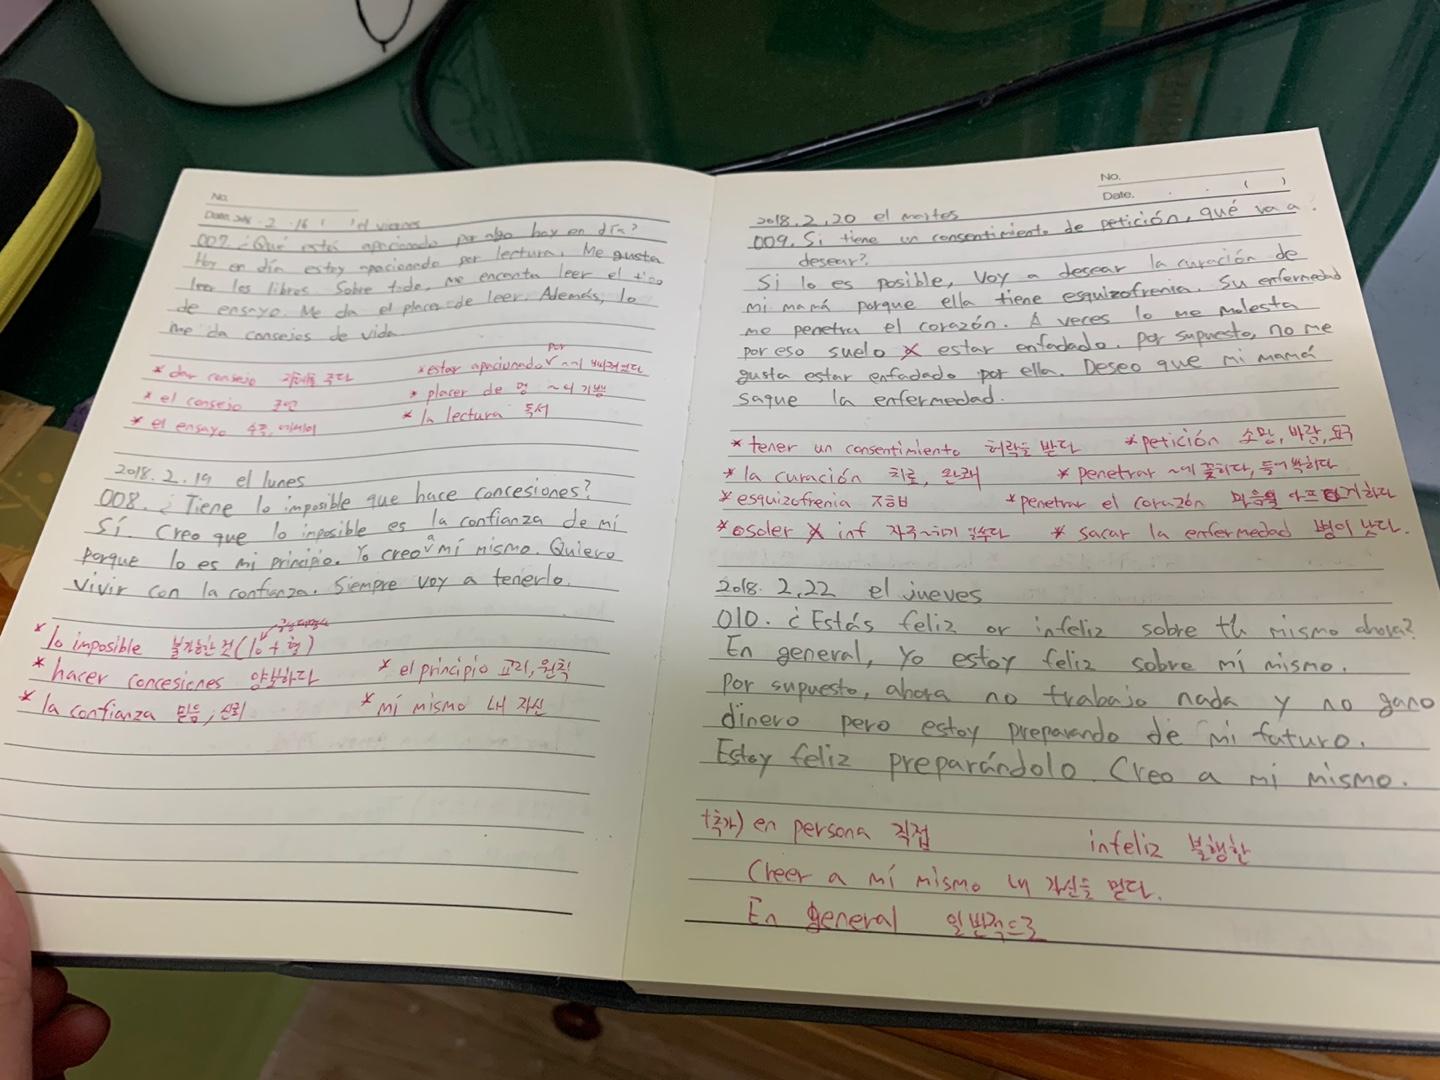 No.
Date. 2018. 2. 16 ( ) el viernes
007. ¿Qué estás apacionado por algo hoy en día?
Hoy en día estoy apacionado por lectura. Me gusta
leer los libros. Sobre todo, me encanta leer el tipo
de ensayo. Me da el placer de leer. Además, lo
me da consejos de vida
* dar consejo 주다
* estar apacionado por ~에 빠져있다
* el consejo 조언
* placer de 명 ~의 기쁨
* el ensayo 수필, 에세이
* la lectura 독서
2018. 2. 19 el lunes
008. ¿Tiene lo imposible que hace concesiones?
Sí. Creo que lo imposible es la confianza de mi
porque lo es mi principio. Yo creo a mí mismo. Quiero
vivir con la confianza. Siempre voy a tenerlo.
* lo imposible 불가한 것 (lo + 형)
* hacer concesiones 양보하다
* el principio 교리, 원칙
* la confianza 믿음, 신뢰
* mí mismo 내 자신
No.
Date. . . ( )
2018. 2. 20 el martes
009. Si tiene un consentimiento de petición, qué va a
desear?
Si lo es posible, Voy a desear la curación de
mi mamá porque ella tiene esquizofrenia. Su enfermedad
me penetra el corazón. A veces lo me molesta
por eso suelo estar enfadado. Por supuesto, no me
gusta estar enfadado por ella. Deseo que mi mamá
saque la enfermedad.
* tener un consentimiento 허락을 받다
* petición 소망, 바람, 요구
* la curación 치료, 완쾌
* penetrar ~에 꽂히다, 들어박히다
* esquizofrenia 조현병
* penetrar el corazón 마음을 아프게하다
* osoler inf 자주~하며 있다
* sacar la enfermedad 병이 낫다.
2018. 2. 22 el jueves
010. ¿Estás feliz or infeliz sobre tu mismo ahora?
En general, Yo estoy feliz sobre mí mismo.
Por supuesto, ahora no trabajo nada y no gano
dinero pero estoy preparando de mi futuro.
Estoy feliz preparándolo. Creo a mi mismo.
+추가) en persona 직접
infeliz 불행한
Creer a mí mismo 내 자신을 믿다.
En general 일반적으로